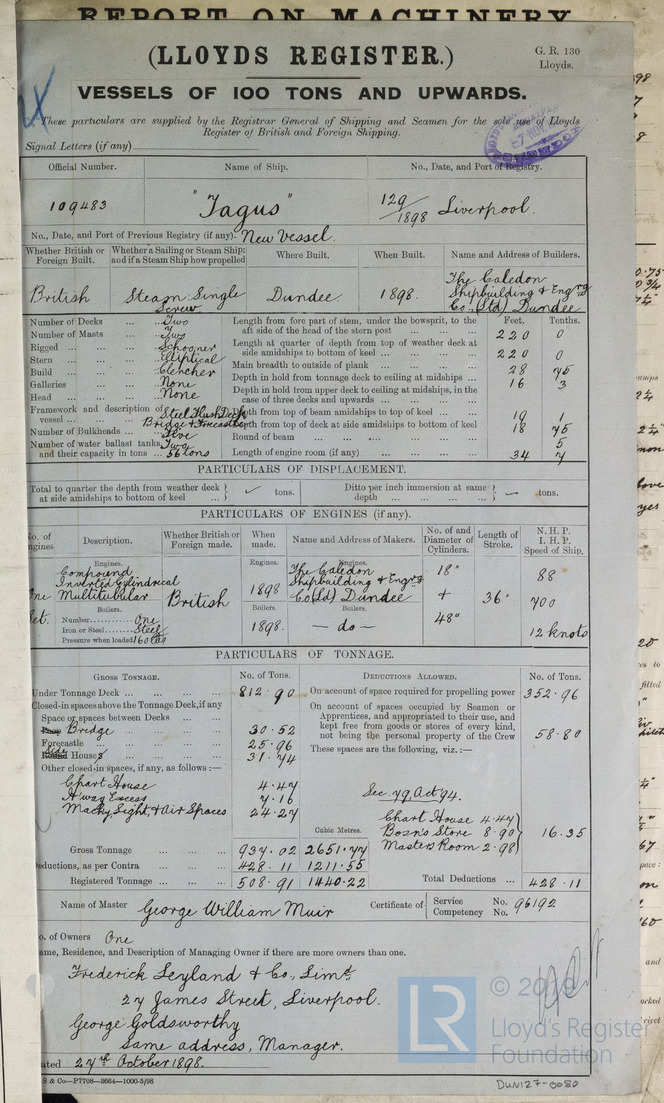 REPORT ON MACHINERY
(LLOYDS REGISTER.)
G. R. 130
Lloyds.
VESSELS OF 100 TONS AND UPWARDS.
These particulars are supplied by the Registrar General of Shipping and Seamen for the sole use of Lloyds
Register of British and Foreign Shipping.
Signal Letters (if any)
Official Number. Name of Ship. No., Date, and Port of Registry.
109483 "Tagus" 129/1898 Liverpool.
No., Date, and Port of Previous Registry (if any). New Vessel.
Whether British or Foreign Built. Whether a Sailing or Steam Ship; and if a Steam Ship how propelled Where Built. When Built. Name and Address of Builders.
British Steam: Single Screw Dundee 1898. The Caledon Shipbuilding & Engrg Co., (Ltd) Dundee
Number of Decks ... ... Two
Number of Masts ... ... Two
Rigged ... ... Schooner
Stern ... ... Elliptical
Build ... ... Clencher
Galleries ... ... None
Head ... ... None
Framework and description of vessel ... ... Steel Flush Deck Bridge & Forecastle
Number of Bulkheads ... Five
Number of water ballast tanks, and their capacity in tons ... Two 56 tons
Feet. Tenths.
Length from fore part of stem, under the bowsprit, to the aft side of the head of the stern post ... 220 0
Length at quarter of depth from top of weather deck at side amidships to bottom of keel ... 220 0
Main breadth to outside of plank ... 28 75
Depth in hold from tonnage deck to ceiling at midships ... 16 3
Depth in hold from upper deck to ceiling at midships, in the case of three decks and upwards ...
Depth from top of beam amidships to top of keel ... 19 1
Depth from top of deck at side amidships to bottom of keel 18 75
Round of beam ... 5
Length of engine room (if any) ... 34 7
PARTICULARS OF DISPLACEMENT.
Total to quarter the depth from weather deck at side amidships to bottom of keel ... tons. Ditto per inch immersion at same depth ... tons.
PARTICULARS OF ENGINES (if any).
No. of Engines. Description. Whether British or Foreign made. When made. Name and Address of Makers. No. of and Diameter of Cylinders. Length of Stroke. N. H. P. I. H. P. Speed of Ship.
Engines. Engines. Engines.
One Set. Compound Inverted Cylindrical Multitubular British 1898 The Caledon Shipbuilding & Engrg Co (Ld) Dundee 18" + 48" 36" 88 700 12 knots
Boilers. Boilers. Boilers.
Number One
Iron or Steel Steel
Pressure when loaded 160 lbs
1898. — do —
PARTICULARS OF TONNAGE.
GROSS TONNAGE. No. of Tons. DEDUCTIONS ALLOWED. No. of Tons.
Under Tonnage Deck ... 812.90
Closed-in spaces above the Tonnage Deck, if any
Space or spaces between Decks ...
Bridge ... 30.52
Forecastle ... 25.96
Side Houses 31.74
Other closed-in spaces, if any, as follows:—
Chart House 4.47
H'way Excess 7.16
Machy, Light, & Air Spaces 24.27
Cubic Metres.
Gross Tonnage ... 937.02 2651.77
Deductions, as per Contra ... 428.11 1211.55
Registered Tonnage ... 508.91 1440.22
On account of space required for propelling power 352.96
On account of spaces occupied by Seamen or Apprentices, and appropriated to their use, and kept free from goods or stores of every kind, not being the personal property of the Crew 58.80
These spaces are the following, viz.:—
Sec. 79, Act 94.
Chart House 4.47
Bosn's Store 8.90
Masters Room 2.98
16.35
Total Deductions ... 428.11
Name of Master George William Muir Certificate of Service Competency No. No. 96192
No. of Owners One
Name, Residence, and Description of Managing Owner if there are more owners than one.
Frederick Leyland & Co., Limd.
27 James Street, Liverpool.
George Goldsworthy
Same address, Manager.
Dated 27th October 1898.
S & Co—P7708—3664—1000-5/98
LR
Lloyd's Register
Foundation
DUN127-0080